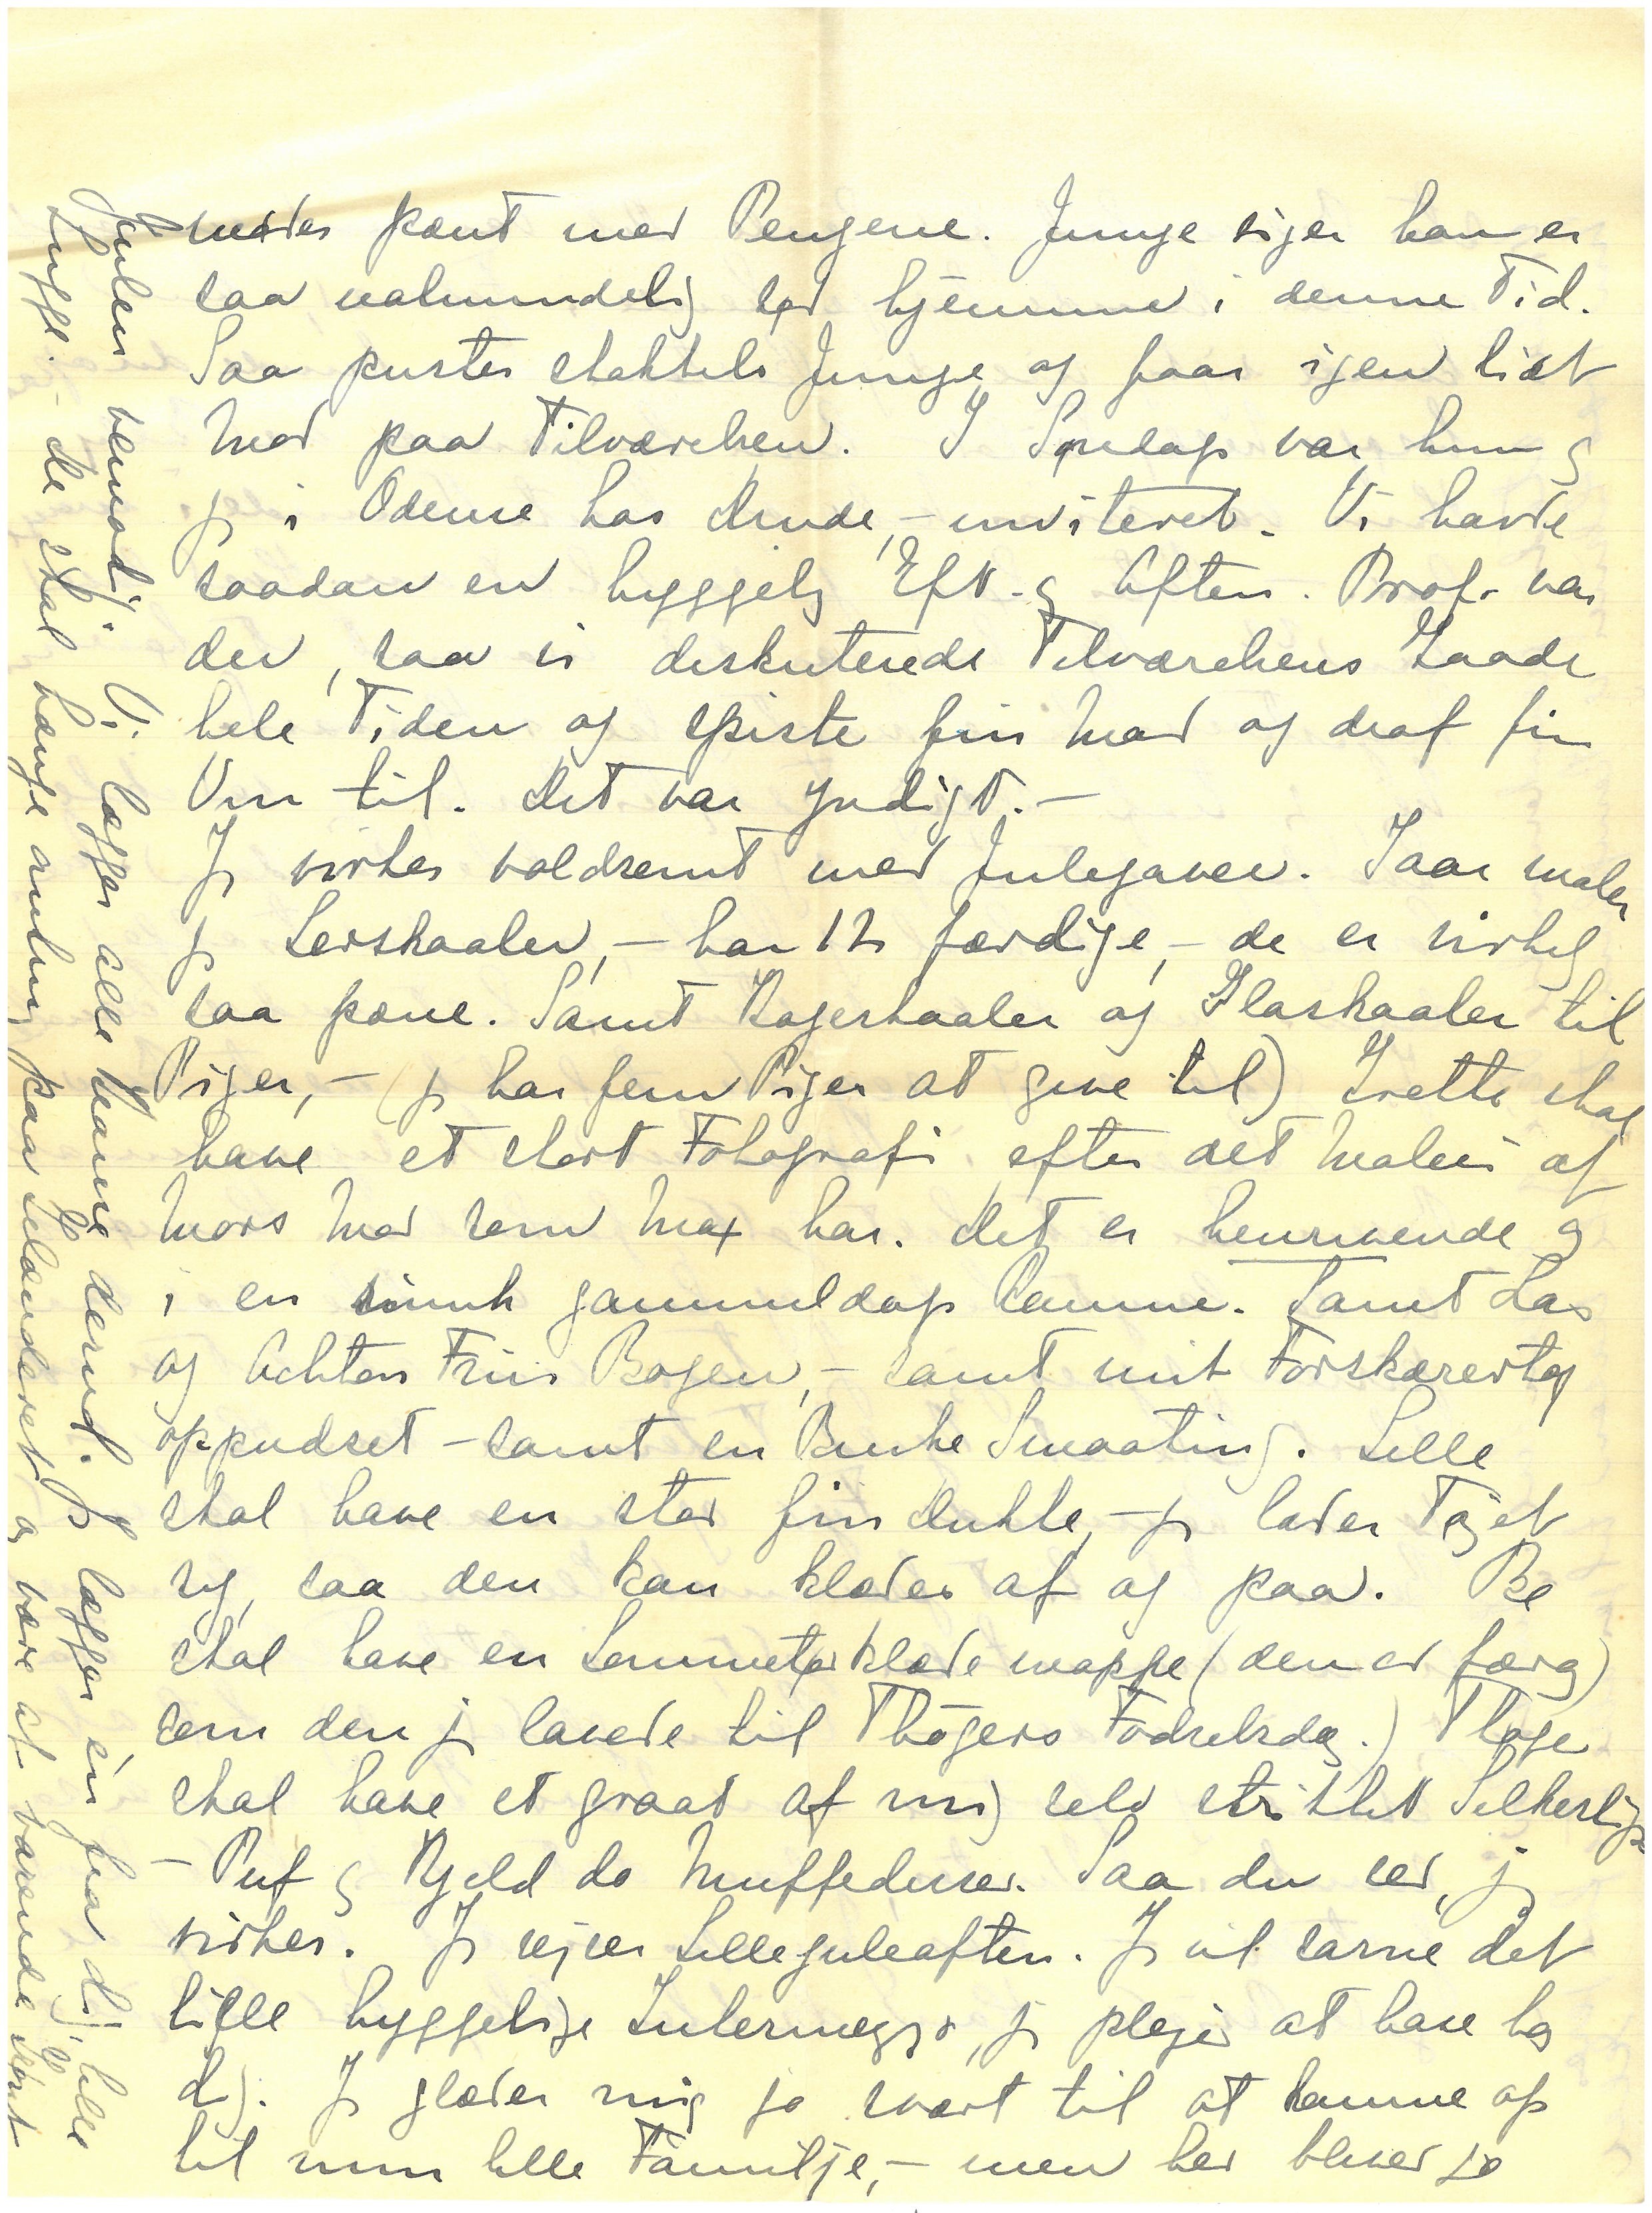 meder pænt med Pengene. Junge siger han er
saa ualmindelig sød hjemme i denne Tid.
Saa puster stakkels Junge og faar igen lidt
Mod paa Tilværelsen. I Søndags var hun og
jeg i Odense hos Drude, – inviteret. Vi havde
saadan en hyggelig Eftr. og Aften. Prof. var
der, saa vi diskuterede Tilværelsens Gaade
hele Tiden og spiste fin Mad og drak fin
Vin til. Det var yndigt. –
Jeg virker voldsomt med Julegaver. I Aar maler
jeg Lerskaaler, – har 12 færdige, – de er virkelig
saa pæne. Samt Kageskaaler og Glasskaaler til
Piger, – (jeg har fem Piger at give til) Grethe skal
have et stort Fotografi efter det Maleri af
Mors Mor som Max har. Det er henrivende og
i en smuk gammeldags Ramme. Samt Las
og Achton Friis Bogen, – samt mit Forskærertøj
oppudset – samt en Bunke Smaating. Lille
skal have en stor fin Dukke, – jeg lader Tøjet
sy, saa den kan klædes af og paa. Be
skal have en Lommetørklædemappe (den er færdig)
som den jeg lavede til Thøgers Fødselsdag.) Thøger
skal have et graat af mig selv strikket Silkeslips
– Puf og Kjeld do Muffediser. Saa du ser, jeg
virker. Jeg rejser Lillejuleaften. Jeg vil savne det
lille hyggelige Intermezzo, jeg plejer at have hos
dig. Jeg glæder mig jo svært til at komme op
til min lille Familje, – men her bliver jo
Julen vemodig. Vi lægger alle Kranse derud. Jeg lægger én fra dig, lille
Lugge. – de skal hænge anden paa Selænderet og være af varende Slags